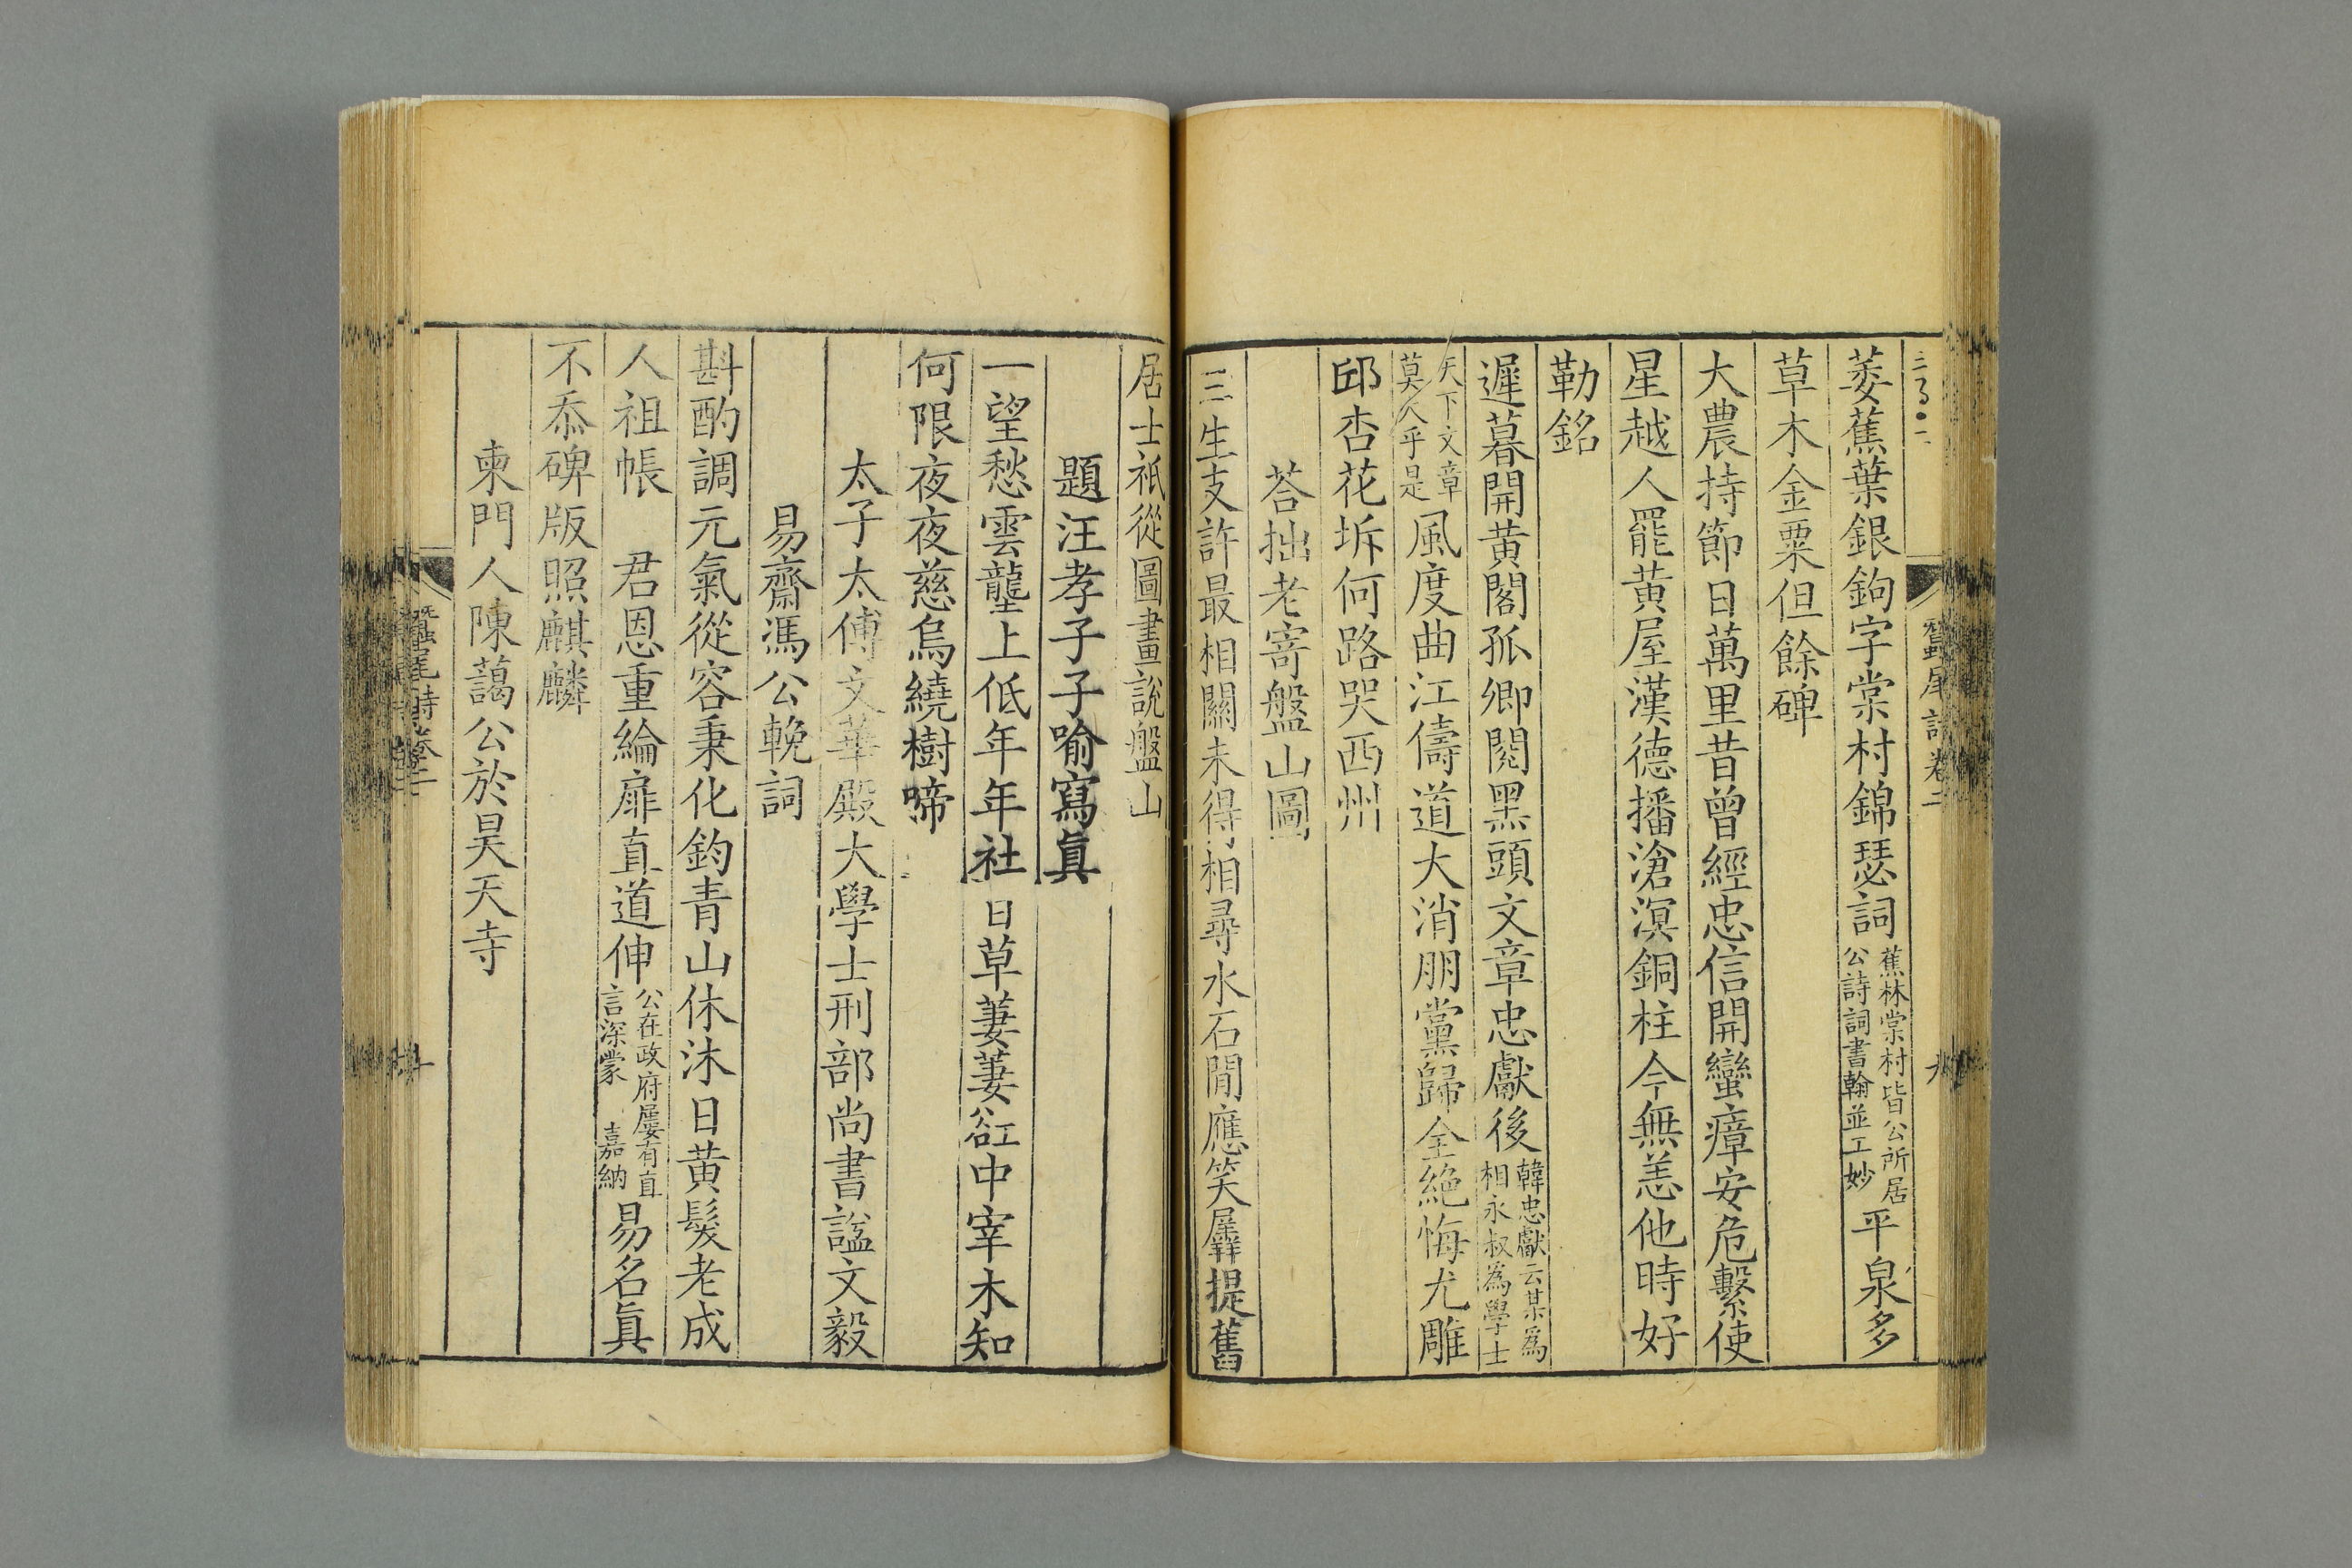 蠶尾詩卷二
萎蕉葉銀鉤字棠村錦瑟詞蕉林棠村皆公所居公詩詞書翰並工妙平泉多
草木金粟但餘碑
大農持節日萬里昔曾經忠信開蠻瘴安危繫使
星越人罷黃屋漢德播滄溟銅柱今無恙他時好
勒銘
遲暮開黃閣孤卿閱黑頭文章忠獻後韓忠獻云某爲相永叔爲學士
天下文章莫大乎是風度曲江儔道大消朋黨歸全絶悔尤雕
邱杏花坼何路哭西州
荅拙老寄盤山圖
三生支許最相關未得相尋水石閒應笑羼提舊
居士祇從圖畫說盤山
題汪孝子子喻寫眞
一望愁雲壟上低年年社日草萋萋谾中宰木知
何限夜夜慈烏繞樹啼
太子太傅文華殿大學士刑部尚書諡文毅
易齋馮公輓詞
斟酌調元氣從容秉化鈞青山休沐日黃髮老成
人祖帳 君恩重綸扉直道伸公在政府屢有直言深蒙 嘉納易名眞
不忝碑版照麒麟
東門人陳藹公於昊天寺
蠶尾詩卷二